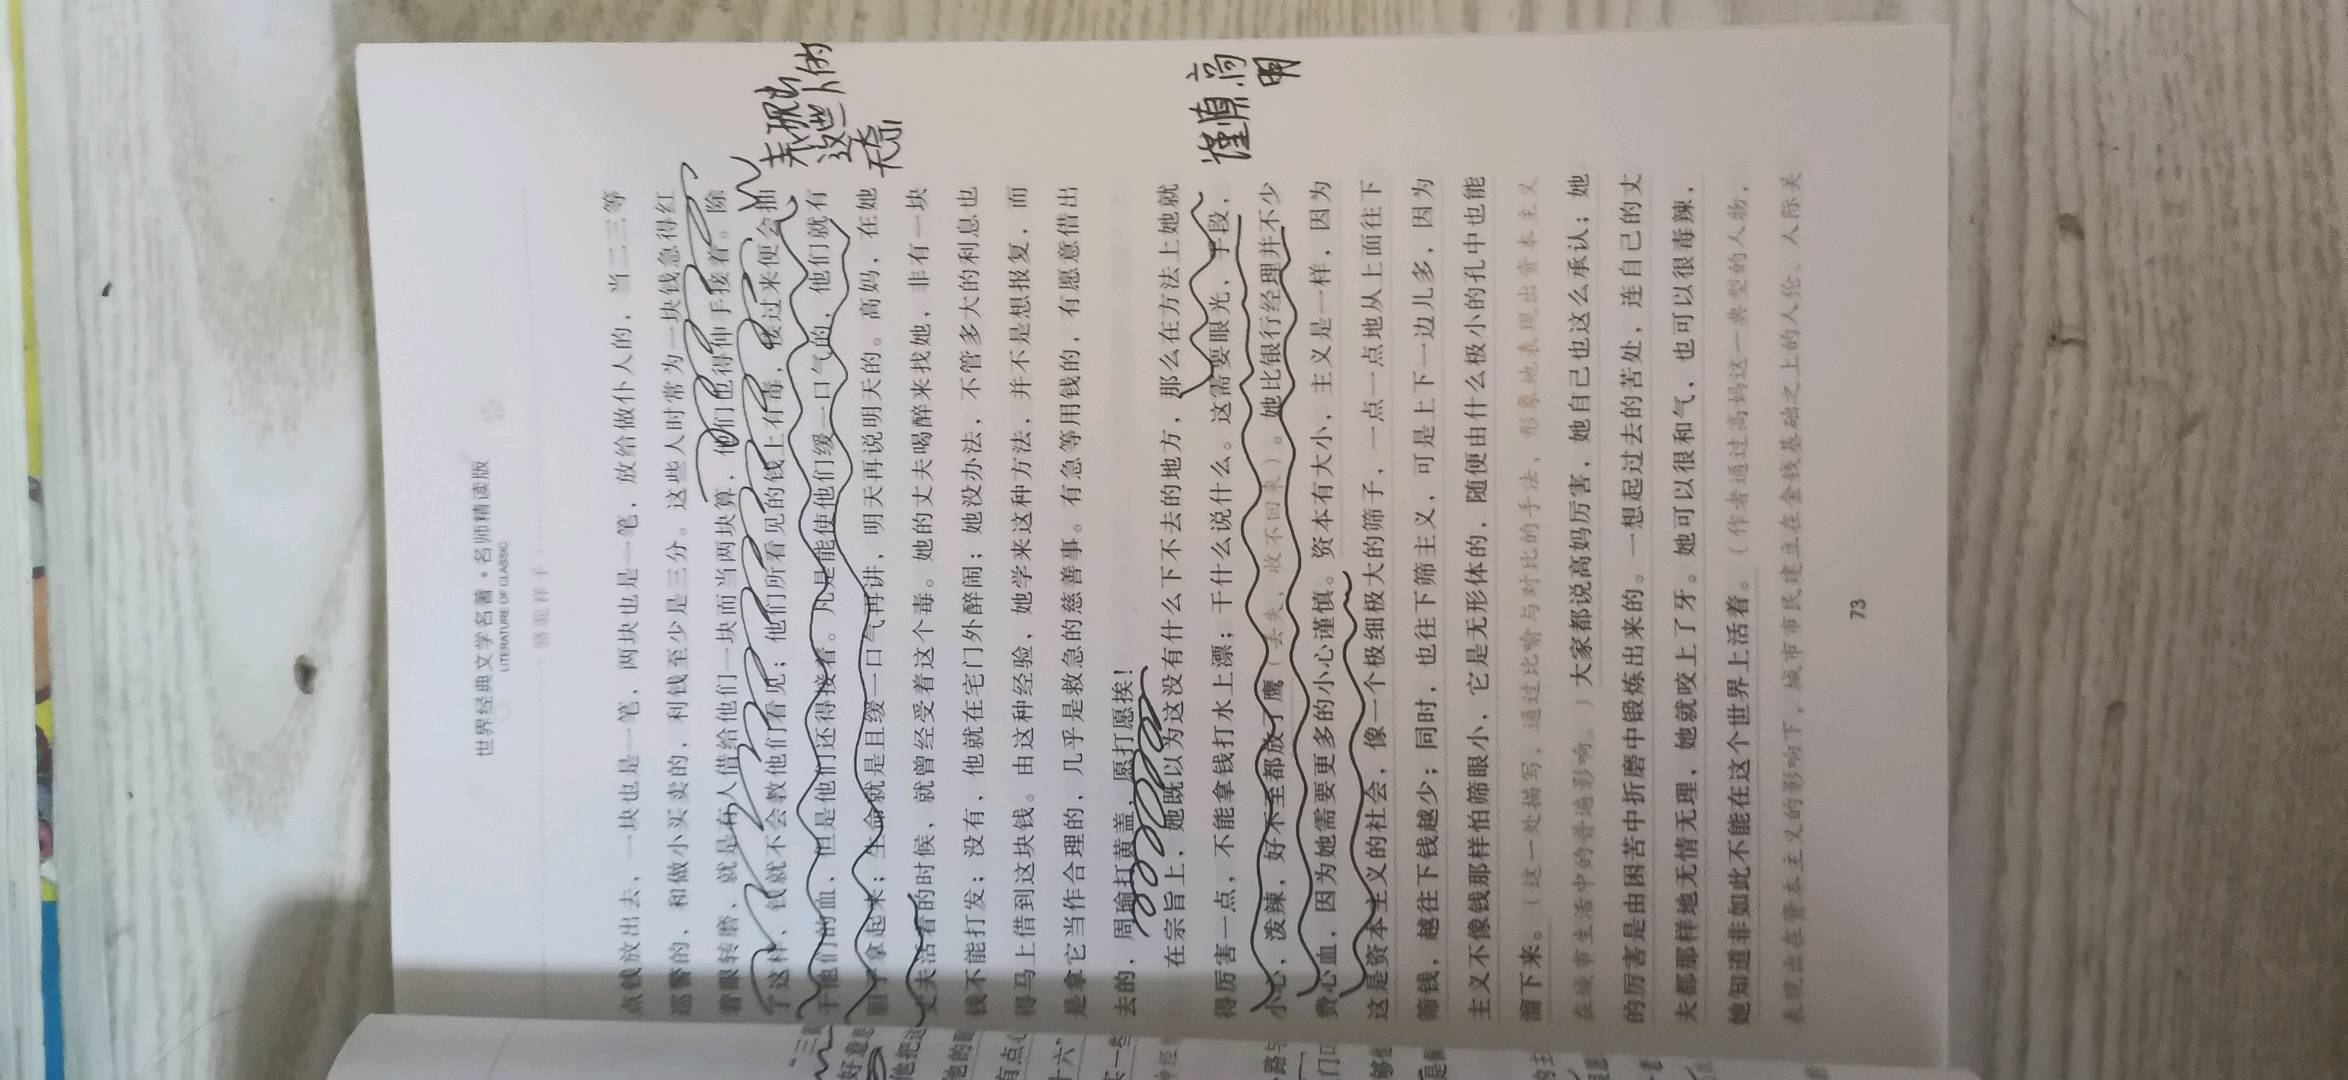 世界经典文学名著·名师精读版
LITERATURE OF CLASSIC
骆驼祥子
点钱放出去，一块也是一笔，两块也是一笔，放给做仆人的，当二三等
巡警的，和做小买卖的，利钱至少是三分。这些人时常为一块钱急得红
着眼转磨，就是有人借给他们一块而当两块算，他们也得伸手接着。除
了这样，钱就不会教他们看见；他们所看见的钱上有毒，接过来便会抽
干他们的血，但是他们还得接着。凡是能使他们缓一口气的，他们就有
胆子拿起来；生命就是且缓一口气再讲，明天再说明天的。高妈，在她
丈夫活着的时候，就曾经受着这个毒。她的丈夫喝醉来找她，非有一块
钱不能打发；没有，他就在宅门外醉闹；她没办法，不管多大的利息也
得马上借到这块钱。由这种经验，她学来这种方法，并不是想报复，而
是拿它当作合理的，几乎是救急的慈善事。有急等用钱的，有愿意借出
去的，周瑜打黄盖，愿打愿挨！
在宗旨上，她既以为这没有什么下不去的地方，那么在方法上她就
得厉害一点，不能拿钱打水上漂；干什么说什么。这需要眼光，手段，
小心，泼辣，好不至都放了鹰（丢失，收不回来）。她比银行经理并不少
费心血，因为她需要更多的小心谨慎。资本有大小，主义是一样，因为
这是资本主义的社会，像一个极细极大的筛子，一点一点地从上面往下
筛钱，越往下钱越少；同时，也往下筛主义，可是上下一边儿多，因为
主义不像钱那样怕筛眼小，它是无形体的，随便由什么极小的孔中也能
溜下来。（这一处描写，通过比喻与对比的手法，形象地表现出资本主义
在城市生活中的普遍影响。）大家都说高妈厉害，她自己也这么承认；她
的厉害是由困苦中折磨中锻炼出来的。一想起过去的苦处，连自己的丈
夫都那样地无情无理，她就咬上了牙。她可以很和气，也可以很毒辣，
她知道非如此不能在这个世界上活着。（作者通过高妈这一典型的人物，
表现出在资本主义的影响下，城市市民建立在金钱基础之上的人伦、人际关
73
表现出
这些人的
无奈
谨慎
高
明